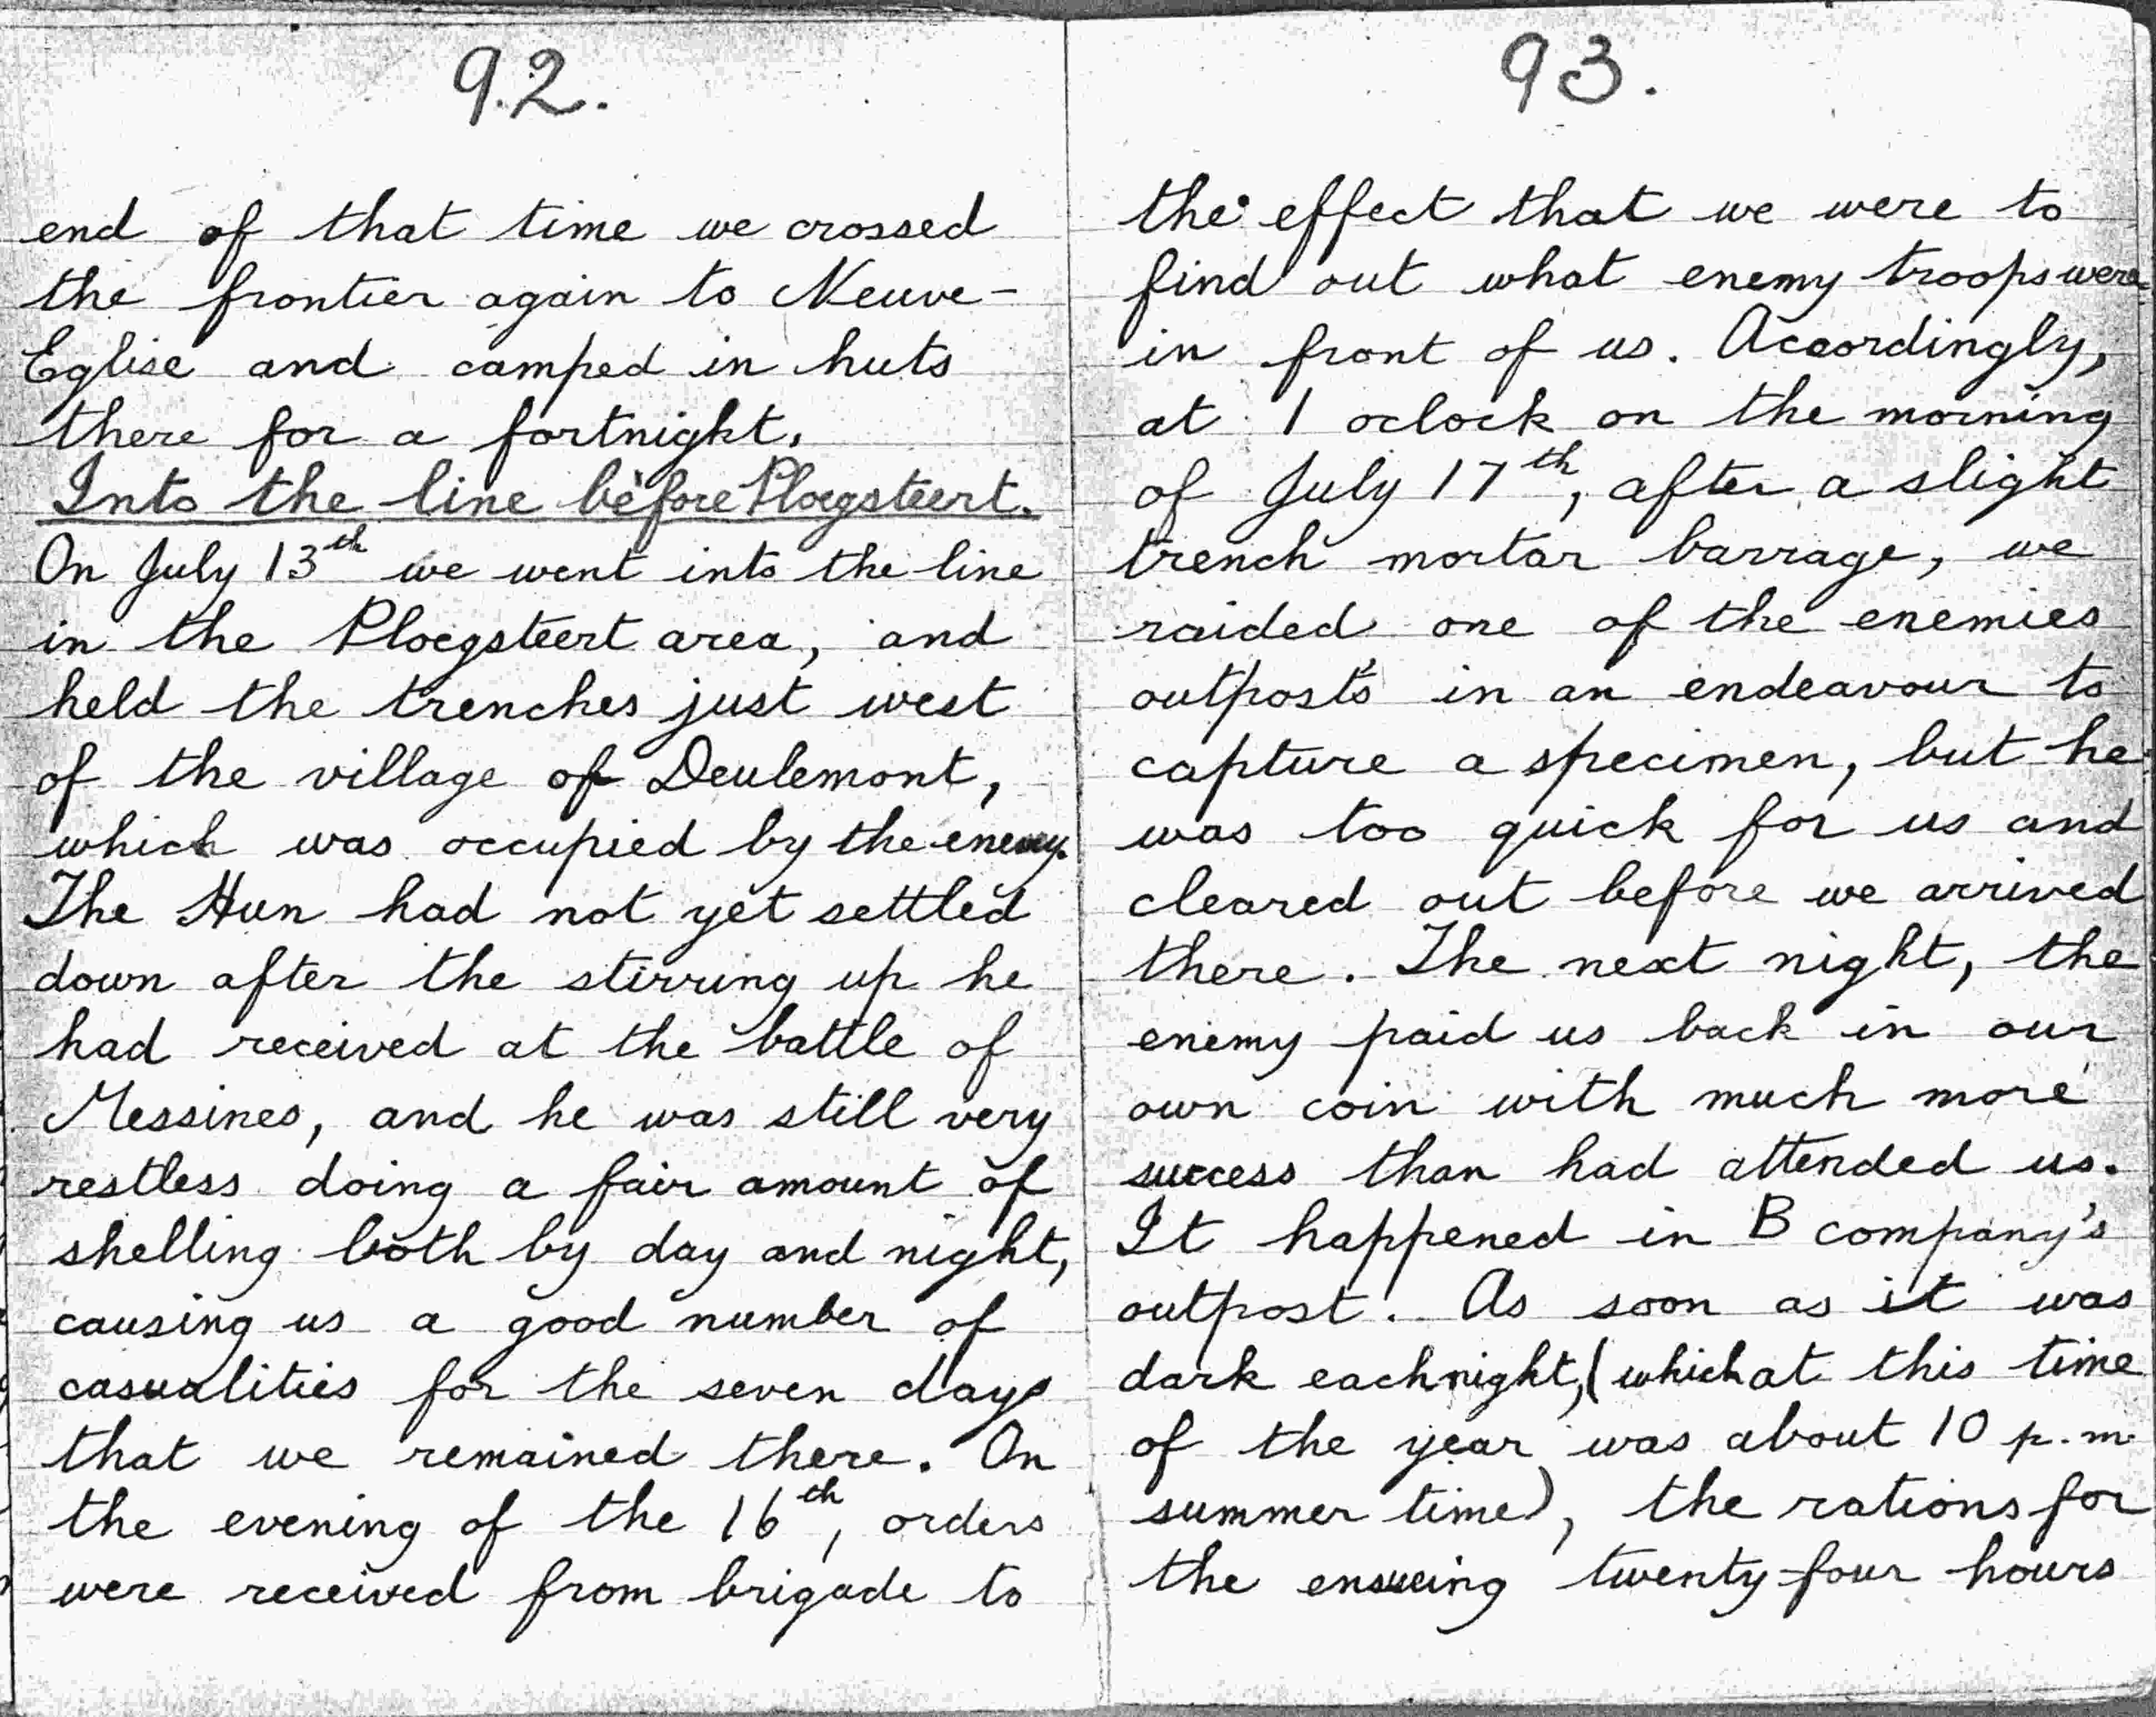 92.
end of that time we crossed
the frontier again to Neuve-
Eglise and camped in huts
there for a fortnight.
Into the line before Ploegsteert.
On July 13th we went into the line
in the Ploegsteert area, and
held the trenches just west
of the village of Deulemont,
which was occupied by the enemy.
The Hun had not yet settled
down after the stirring up he
had received at the battle of
Messines, and he was still very
restless doing a fair amount of
shelling both by day and night,
causing us a good number of
casualities for the seven days
that we remained there. On
the evening of the 16th, orders
were received from brigade to
93.
the effect that we were to
find out what enemy troops were
in front of us. Accordingly,
at 1 oclock on the morning
of July 17th, after a slight
trench mortar barrage, we
raided one of the enemies
outpost's in an endeavour to
capture a specimen, but he
was too quick for us and
cleared out before we arrived
there. The next night, the
enemy paid us back in our
own coin with much more
success than had attended us.
It happened in B company's
outpost. As soon as it was
dark each night, (which at this time
of the year was about 10 p.m.
summer time), the rations for
the ensueing twenty-four hours